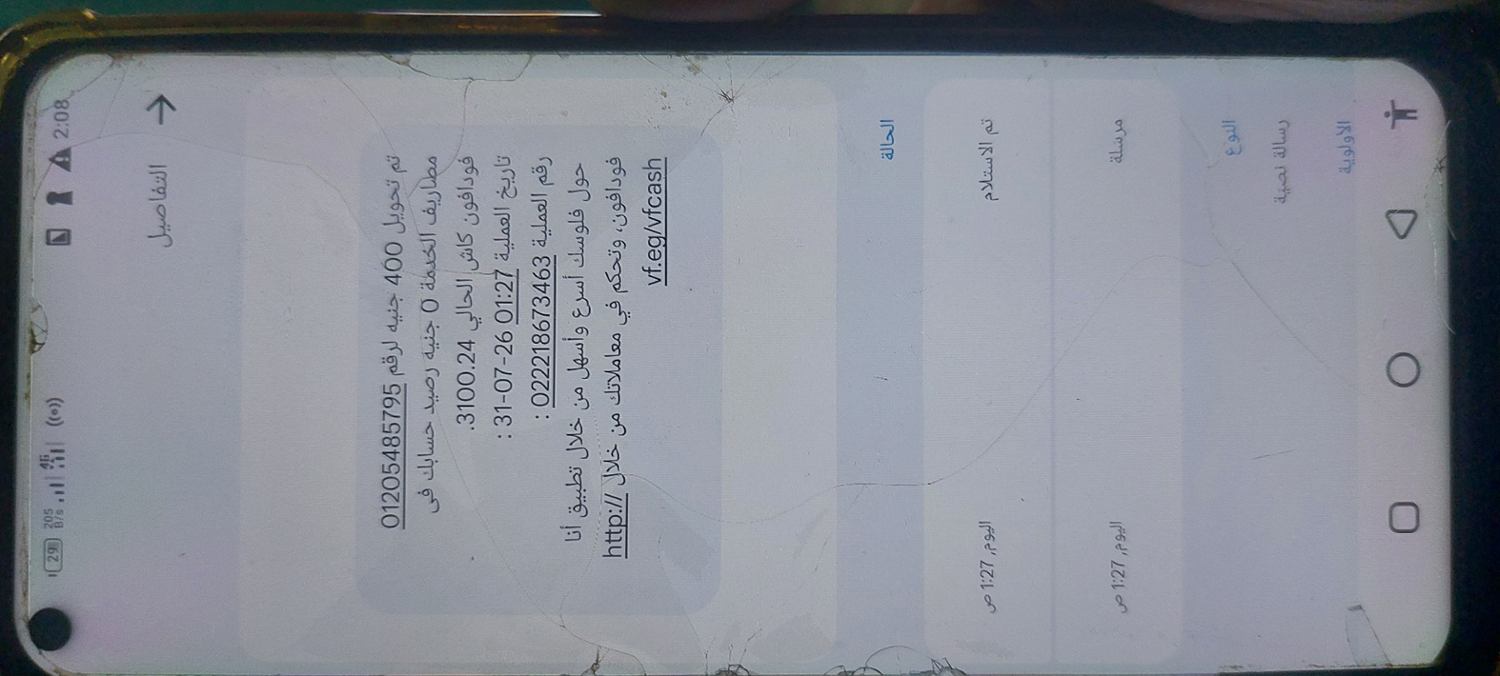 2:08
205 B/s
4G
29
التفاصيل
تم تحويل 400 جنيه لرقم 01205485795
مصاريف الخدمة 0 جنيه رصيد حسابك فى
فودافون كاش الحالي 3100.24.
تاريخ العملية 01:27 31-07-26 :
رقم العملية 022218673463 :
حول فلوسك أسرع وأسهل من خلال تطبيق أنا
فودافون، وتحكم في معاملاتك من خلال http://
vf.eg/vfcash
الحالة
تم الاستلام اليوم, 1:27 ص
مرسلة اليوم, 1:27 ص
النوع
رسالة نصية
الأولوية